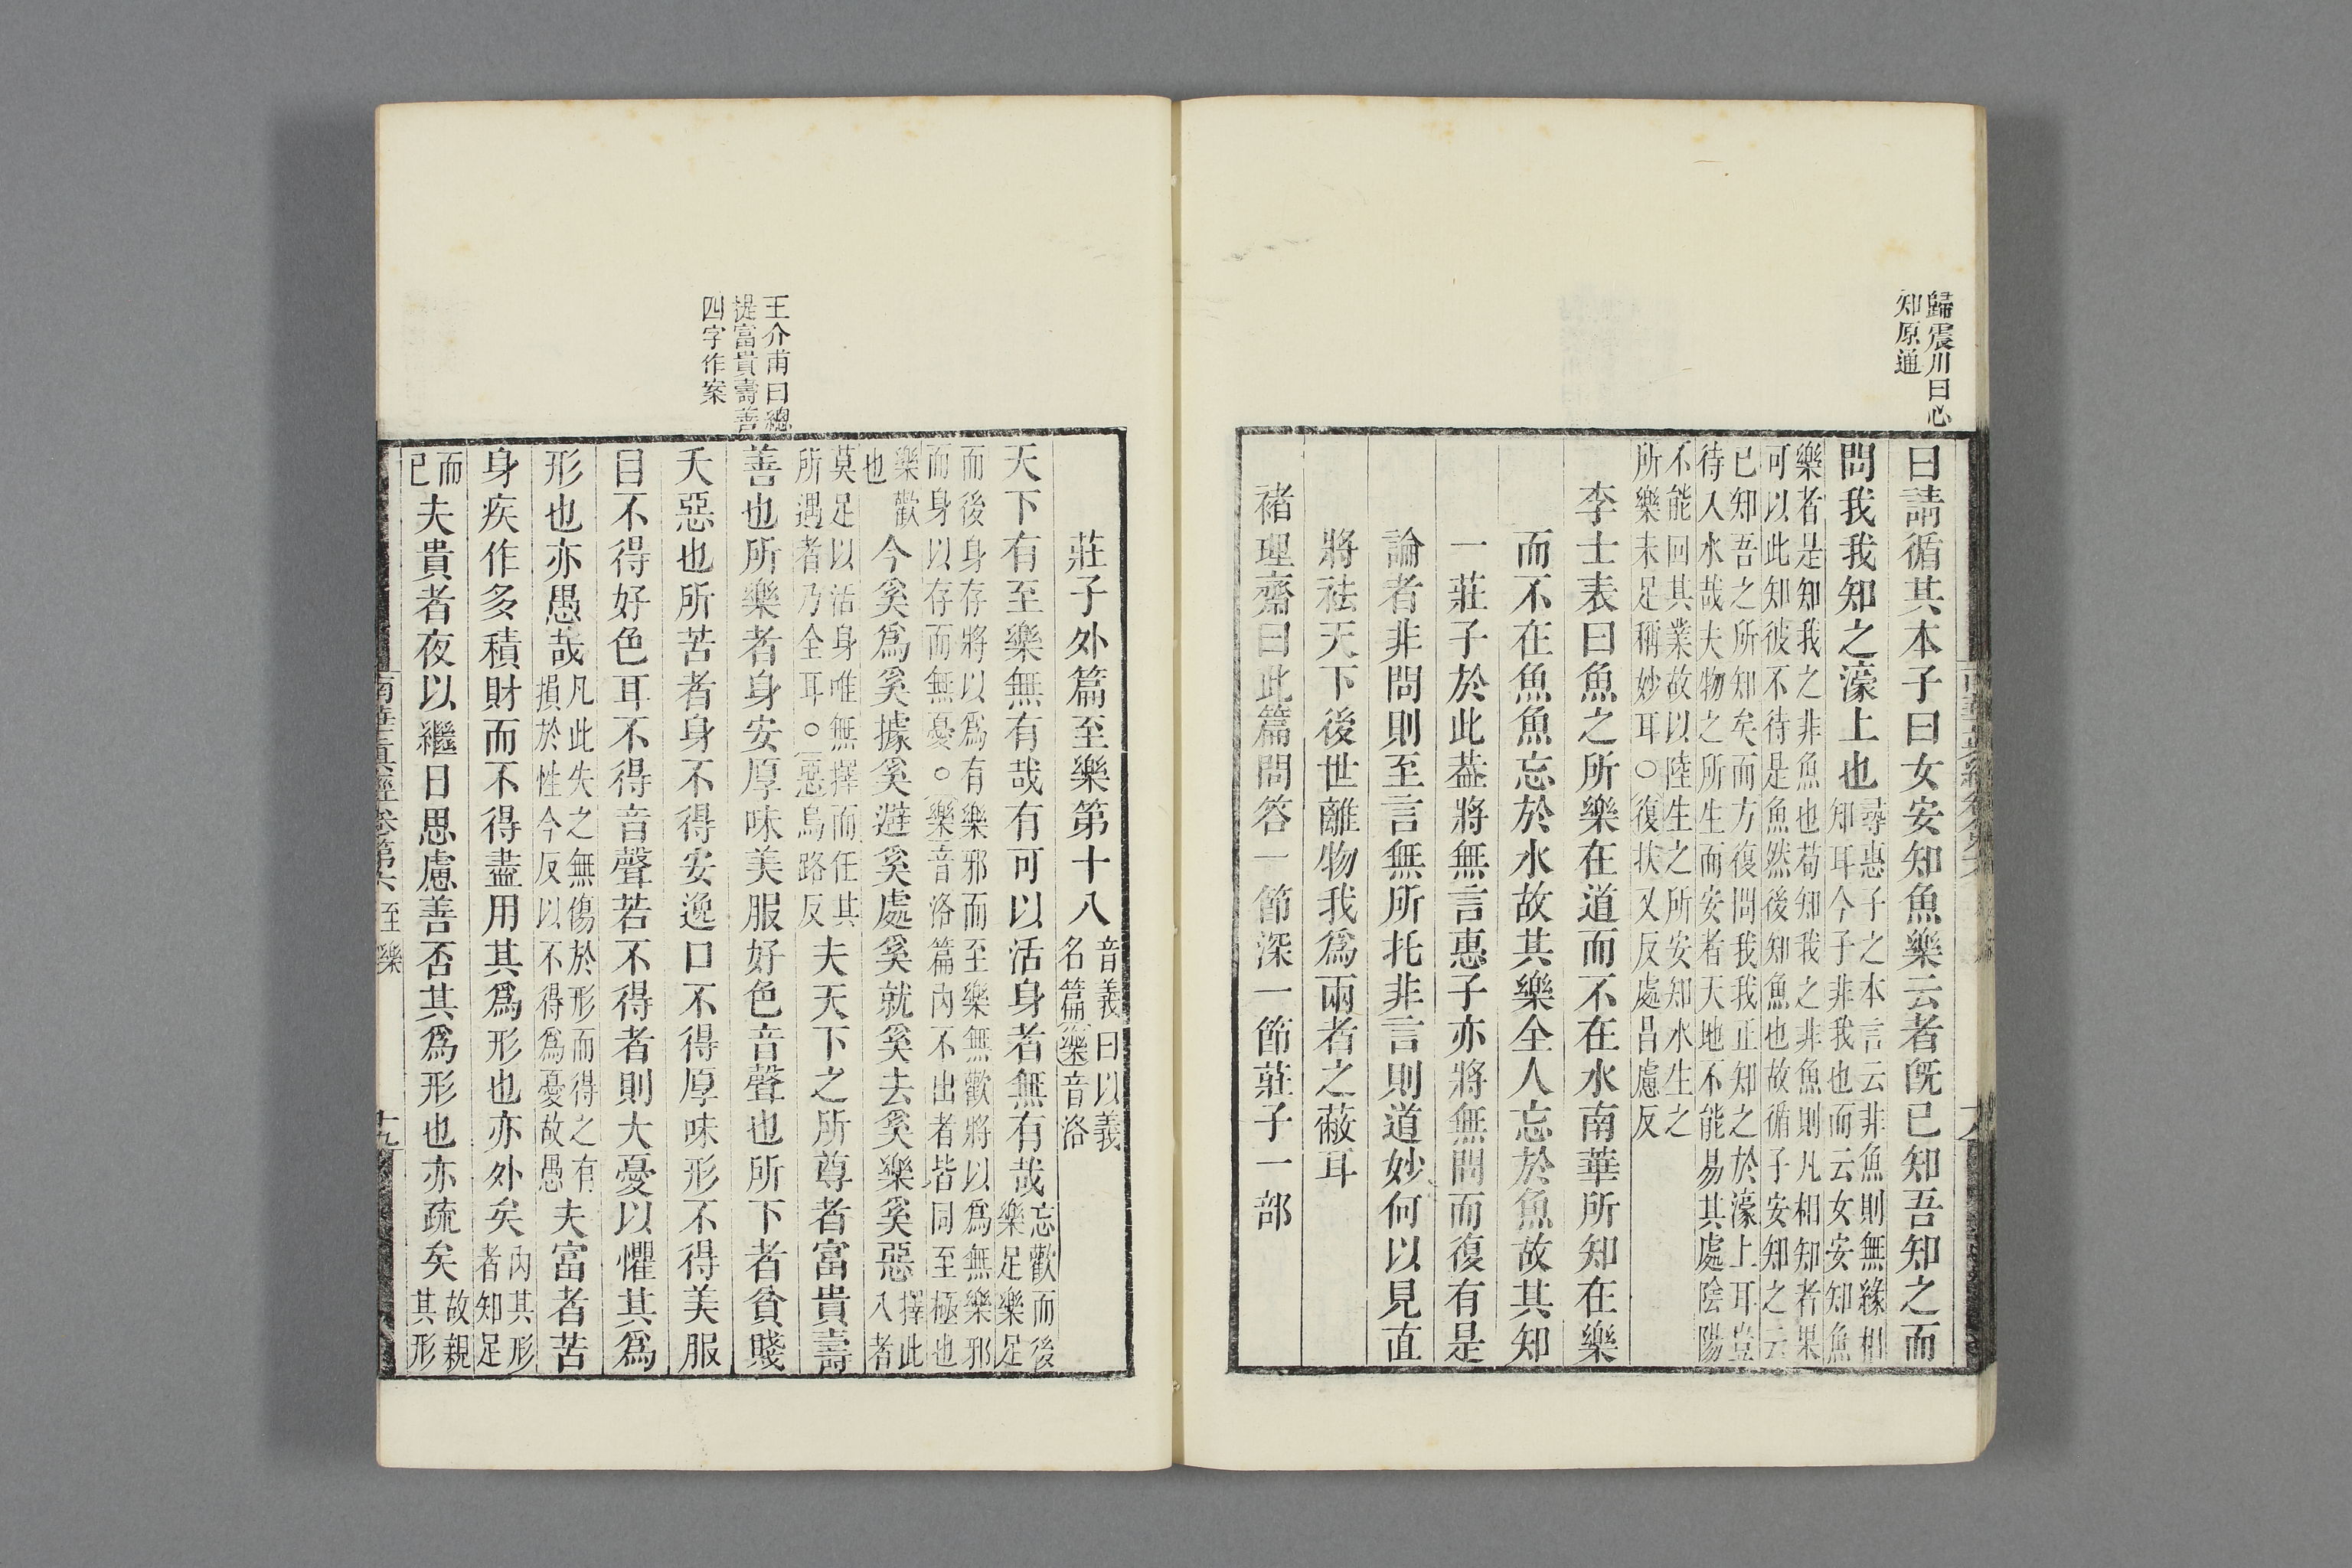 歸震川曰心
知原通
曰請循其本子曰女安知魚樂云者旣已知吾知之而
問我我知之濠上也
尋惠子之本言云非魚則無緣相
知耳今子非我也而云女安知魚
樂者是知我之非魚也苟知我之非魚則凡相知者果
可以此知彼不待是魚然後知魚也故循子安知之云
已知吾之所知矣而方復問我我正知之於濠上耳豈
待入水哉夫物之所生而安者天地不能易其處陰陽
不能回其業故以陸生之所安知水生之
所樂未足稱妙耳○復扶又反處昌慮反
李士表曰魚之所樂在道而不在水南華所知在樂
而不在魚魚忘於水故其樂全人忘於魚故其知
一莊子於此葢將無言惠子亦將無問而復有是
論者非問則至言無所托非言則道妙何以見直
將祛天下後世離物我爲兩者之蔽耳
褚理齋曰此篇問答一節深一節莊子一部
王介甫曰總
提富貴壽善
四字作案
莊子外篇至樂第十八
音義曰以義
名篇樂音洛
天下有至樂無有哉有可以活身者無有哉
忘歡而後
樂足樂足
而後身存將以爲有樂邪而至樂無歡將以爲無樂邪
而身以存而無憂○樂音洛篇內不出者皆同至極也
樂歡
也
今奚爲奚據奚避奚處奚就奚去奚樂奚惡
擇此
八者
莫足以活身唯無擇而任其
所遇者乃全耳○惡烏路反
夫天下之所尊者富貴壽
善也所樂者身安厚味美服好色音聲也所下者貧賤
夭惡也所苦者身不得安逸口不得厚味形不得美服
目不得好色耳不得音聲若不得者則大憂以懼其爲
形也亦愚哉
凡此失之無傷於形而得之有
損於性今反以不得爲憂故愚
夫富者苦
身疾作多積財而不得盡用其爲形也亦外矣
內其形
者知足
而
已
夫貴者夜以繼日思慮善否其爲形也亦疏矣
故親
其形
南華眞經卷第六
至樂
十九